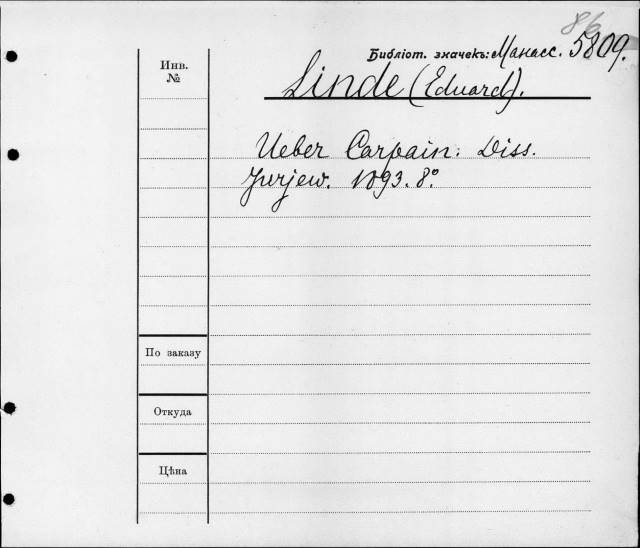 86
Библіот. значекъ: Манасс. 5809.
Инв.
№
Linde (Eduard).
Ueber Carpain. Diss.
Jurjew. 1893. 8°
По заказу
Откуда
Цѣна